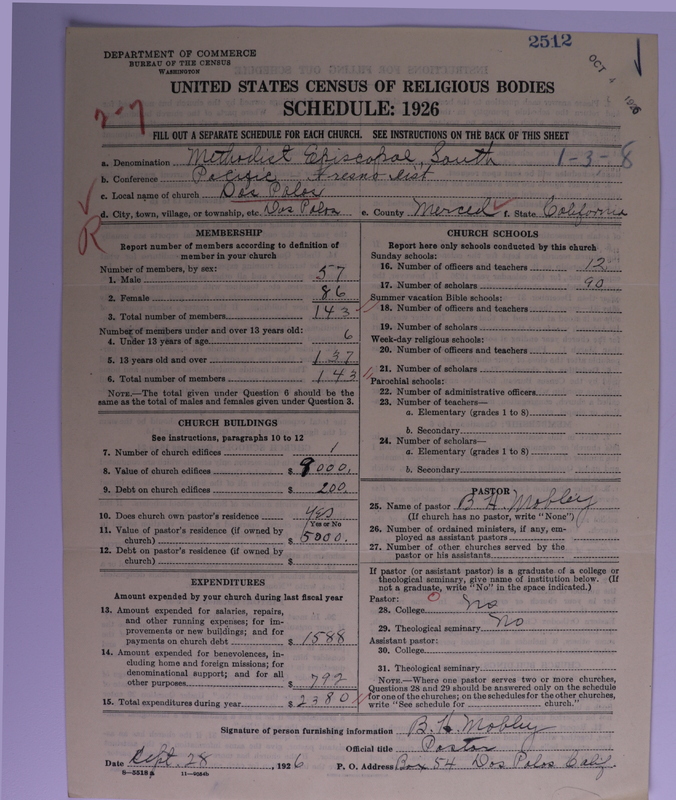 2512
OCT 4 1926
DEPARTMENT OF COMMERCE
BUREAU OF THE CENSUS
WASHINGTON
UNITED STATES CENSUS OF RELIGIOUS BODIES
SCHEDULE: 1926
2-7
FILL OUT A SEPARATE SCHEDULE FOR EACH CHURCH. SEE INSTRUCTIONS ON THE BACK OF THIS SHEET
a. Denomination Methodist Episcopal, South 1-3-8
b. Conference Pacific - Fresno dist
c. Local name of church Dos Palos
d. City, town, village, or township, etc. Dos Palos e. County Merced f. State California
R
MEMBERSHIP
Report number of members according to definition of
member in your church
Number of members, by sex:
1. Male 57
2. Female 86
3. Total number of members 143
Number of members under and over 13 years old:
4. Under 13 years of age 6
5. 13 years old and over 137
6. Total number of members 143
NOTE.—The total given under Question 6 should be the
same as the total of males and females given under Question 3.
CHURCH BUILDINGS
See instructions, paragraphs 10 to 12
7. Number of church edifices 1
8. Value of church edifices $ 9000.
9. Debt on church edifices $ 200.
10. Does church own pastor's residence yes
Yes or No
11. Value of pastor's residence (if owned by
church) $ 5000.
12. Debt on pastor's residence (if owned by
church) $
EXPENDITURES
Amount expended by your church during last fiscal year
13. Amount expended for salaries, repairs,
and other running expenses; for im-
provements or new buildings; and for
payments on church debt $ 1588
14. Amount expended for benevolences, in-
cluding home and foreign missions; for
denominational support; and for all
other purposes $ 792
15. Total expenditures during year $ 2380
CHURCH SCHOOLS
Report here only schools conducted by this church
Sunday schools:
16. Number of officers and teachers 12
17. Number of scholars 90
Summer vacation Bible schools:
18. Number of officers and teachers
19. Number of scholars
Week-day religious schools:
20. Number of officers and teachers
21. Number of scholars
Parochial schools:
22. Number of administrative officers
23. Number of teachers—
a. Elementary (grades 1 to 8)
b. Secondary
24. Number of scholars—
a. Elementary (grades 1 to 8)
b. Secondary
PASTOR
25. Name of pastor B H Mobley
(If church has no pastor, write "None")
26. Number of ordained ministers, if any, em-
ployed as assistant pastors
27. Number of other churches served by the
pastor or his assistants
If pastor (or assistant pastor) is a graduate of a college or
theological seminary, give name of institution below. (If
not a graduate, write "No" in the space indicated.)
Pastor:
28. College No
29. Theological seminary No
Assistant pastor:
30. College
31. Theological seminary
NOTE.—Where one pastor serves two or more churches,
Questions 28 and 29 should be answered only on the schedule
for one of the churches; on the schedules for the other churches,
write "See schedule for church."
Signature of person furnishing information B. H. Mobley
Official title Pastor
Date Sept. 28, 1926 P. O. Address Box 54 Dos Palos Calif.
8-5518a 11-9584b